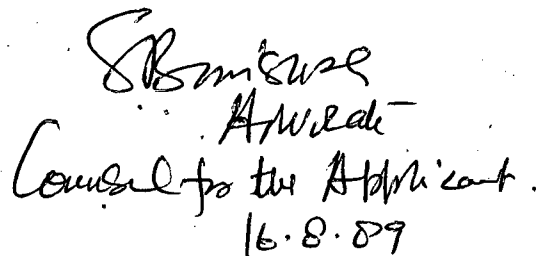 Advocate
Counsel for the Applicant.
16.8.89